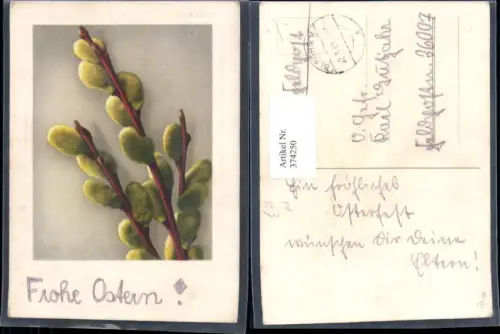 Frohe Ostern!
Feldpost
O. Gefr.
Karl Gutjahr
Feldpostnr. 26007
Artikel Nr.
374250
Ein fröhliches
Osterfest
wünschen Dir Deine
Eltern!